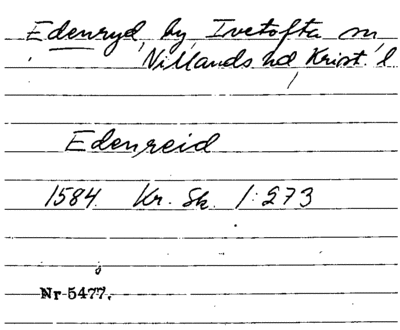 Edenryd, by, Ivetofta sn,
Villands hd, Krist. l
Edenreid
1584 Kr. Sk. 1:273
Nr 5477.